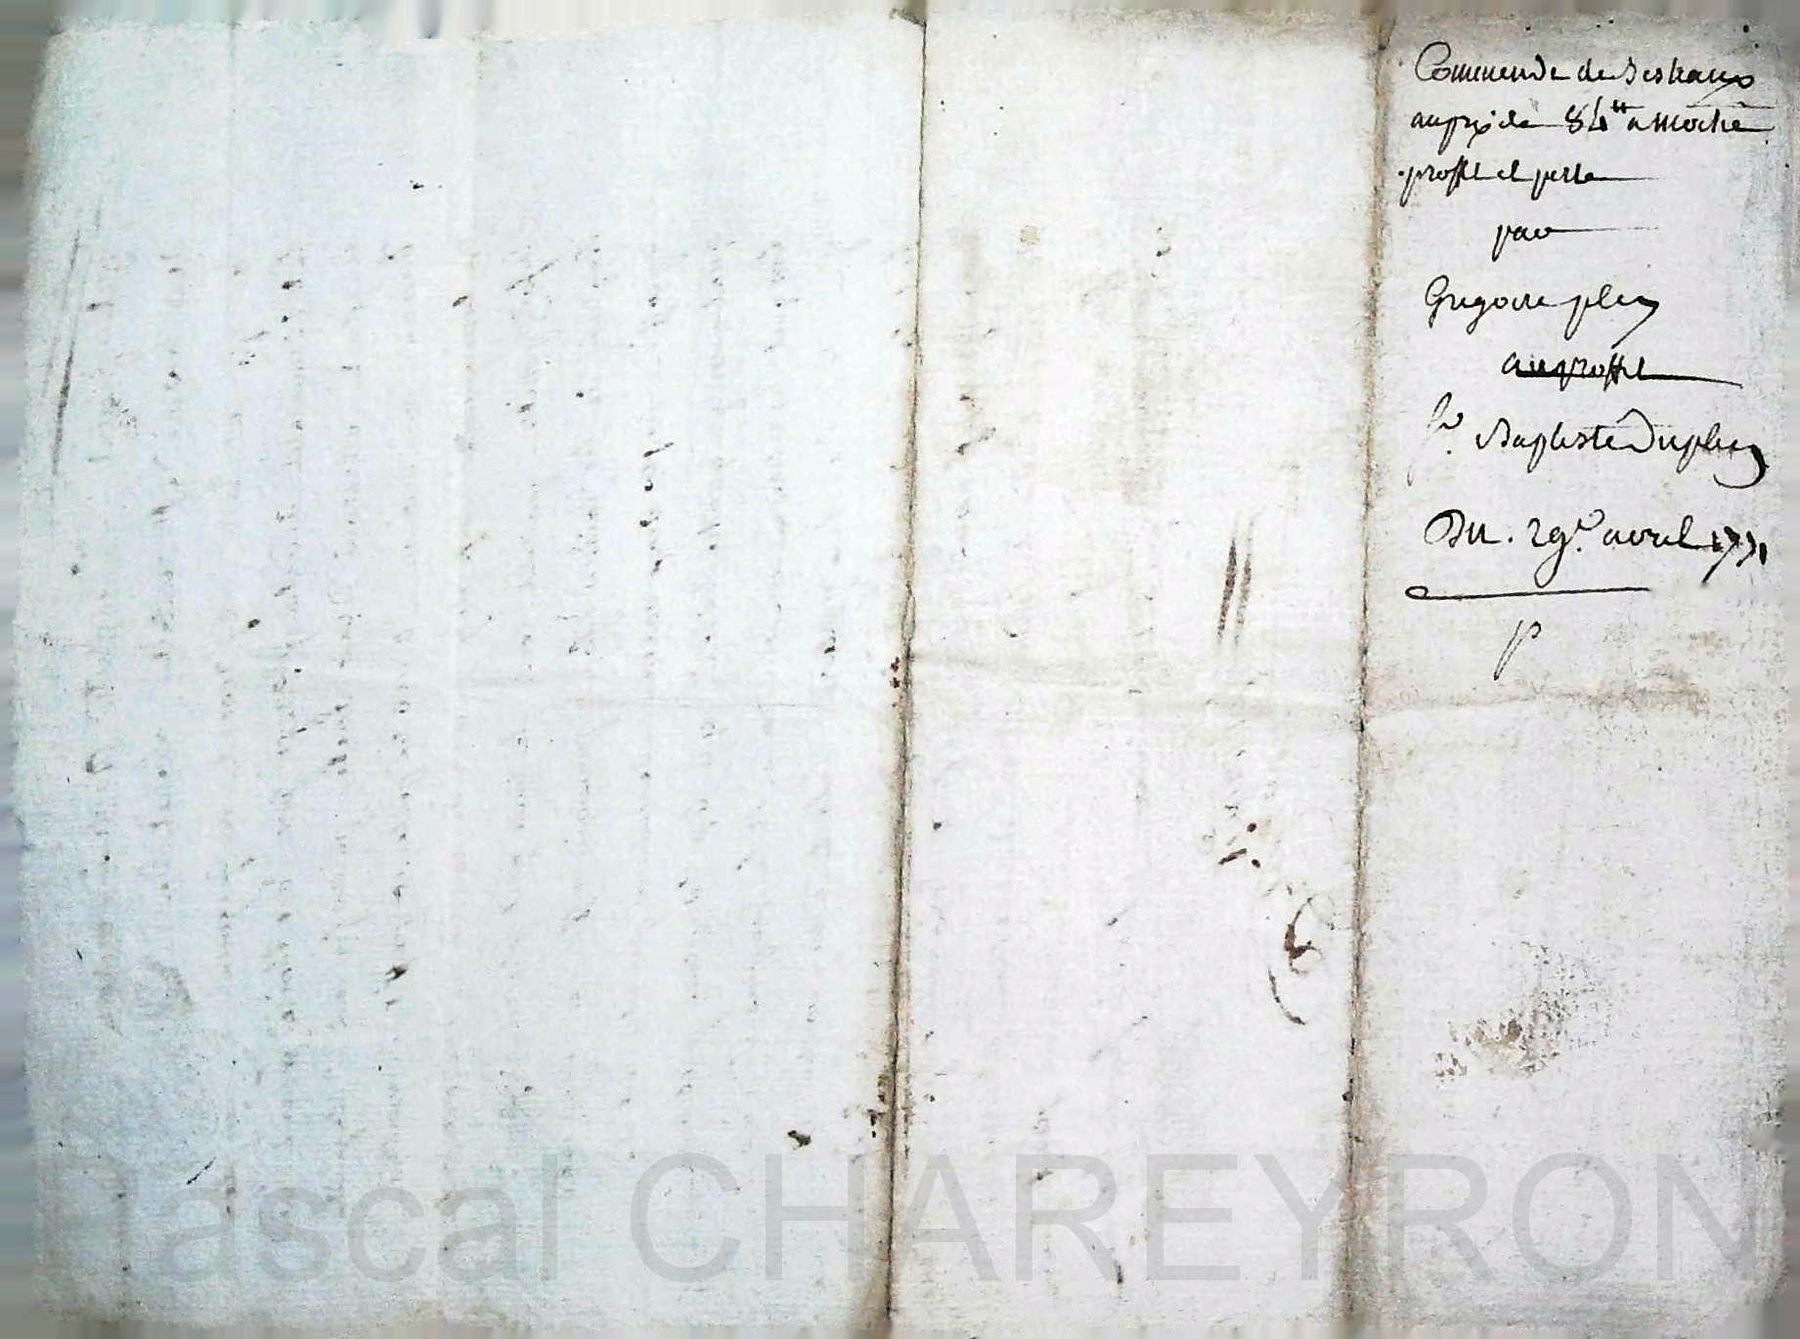 Commende de Bestiaux
au prix de 84tt a moitié
proffit et perte
par
Gregoire pley
au proffit
Sr. Baptiste Dupley
Du. 29e. avril 1771
P
Pascal CHAREYRON